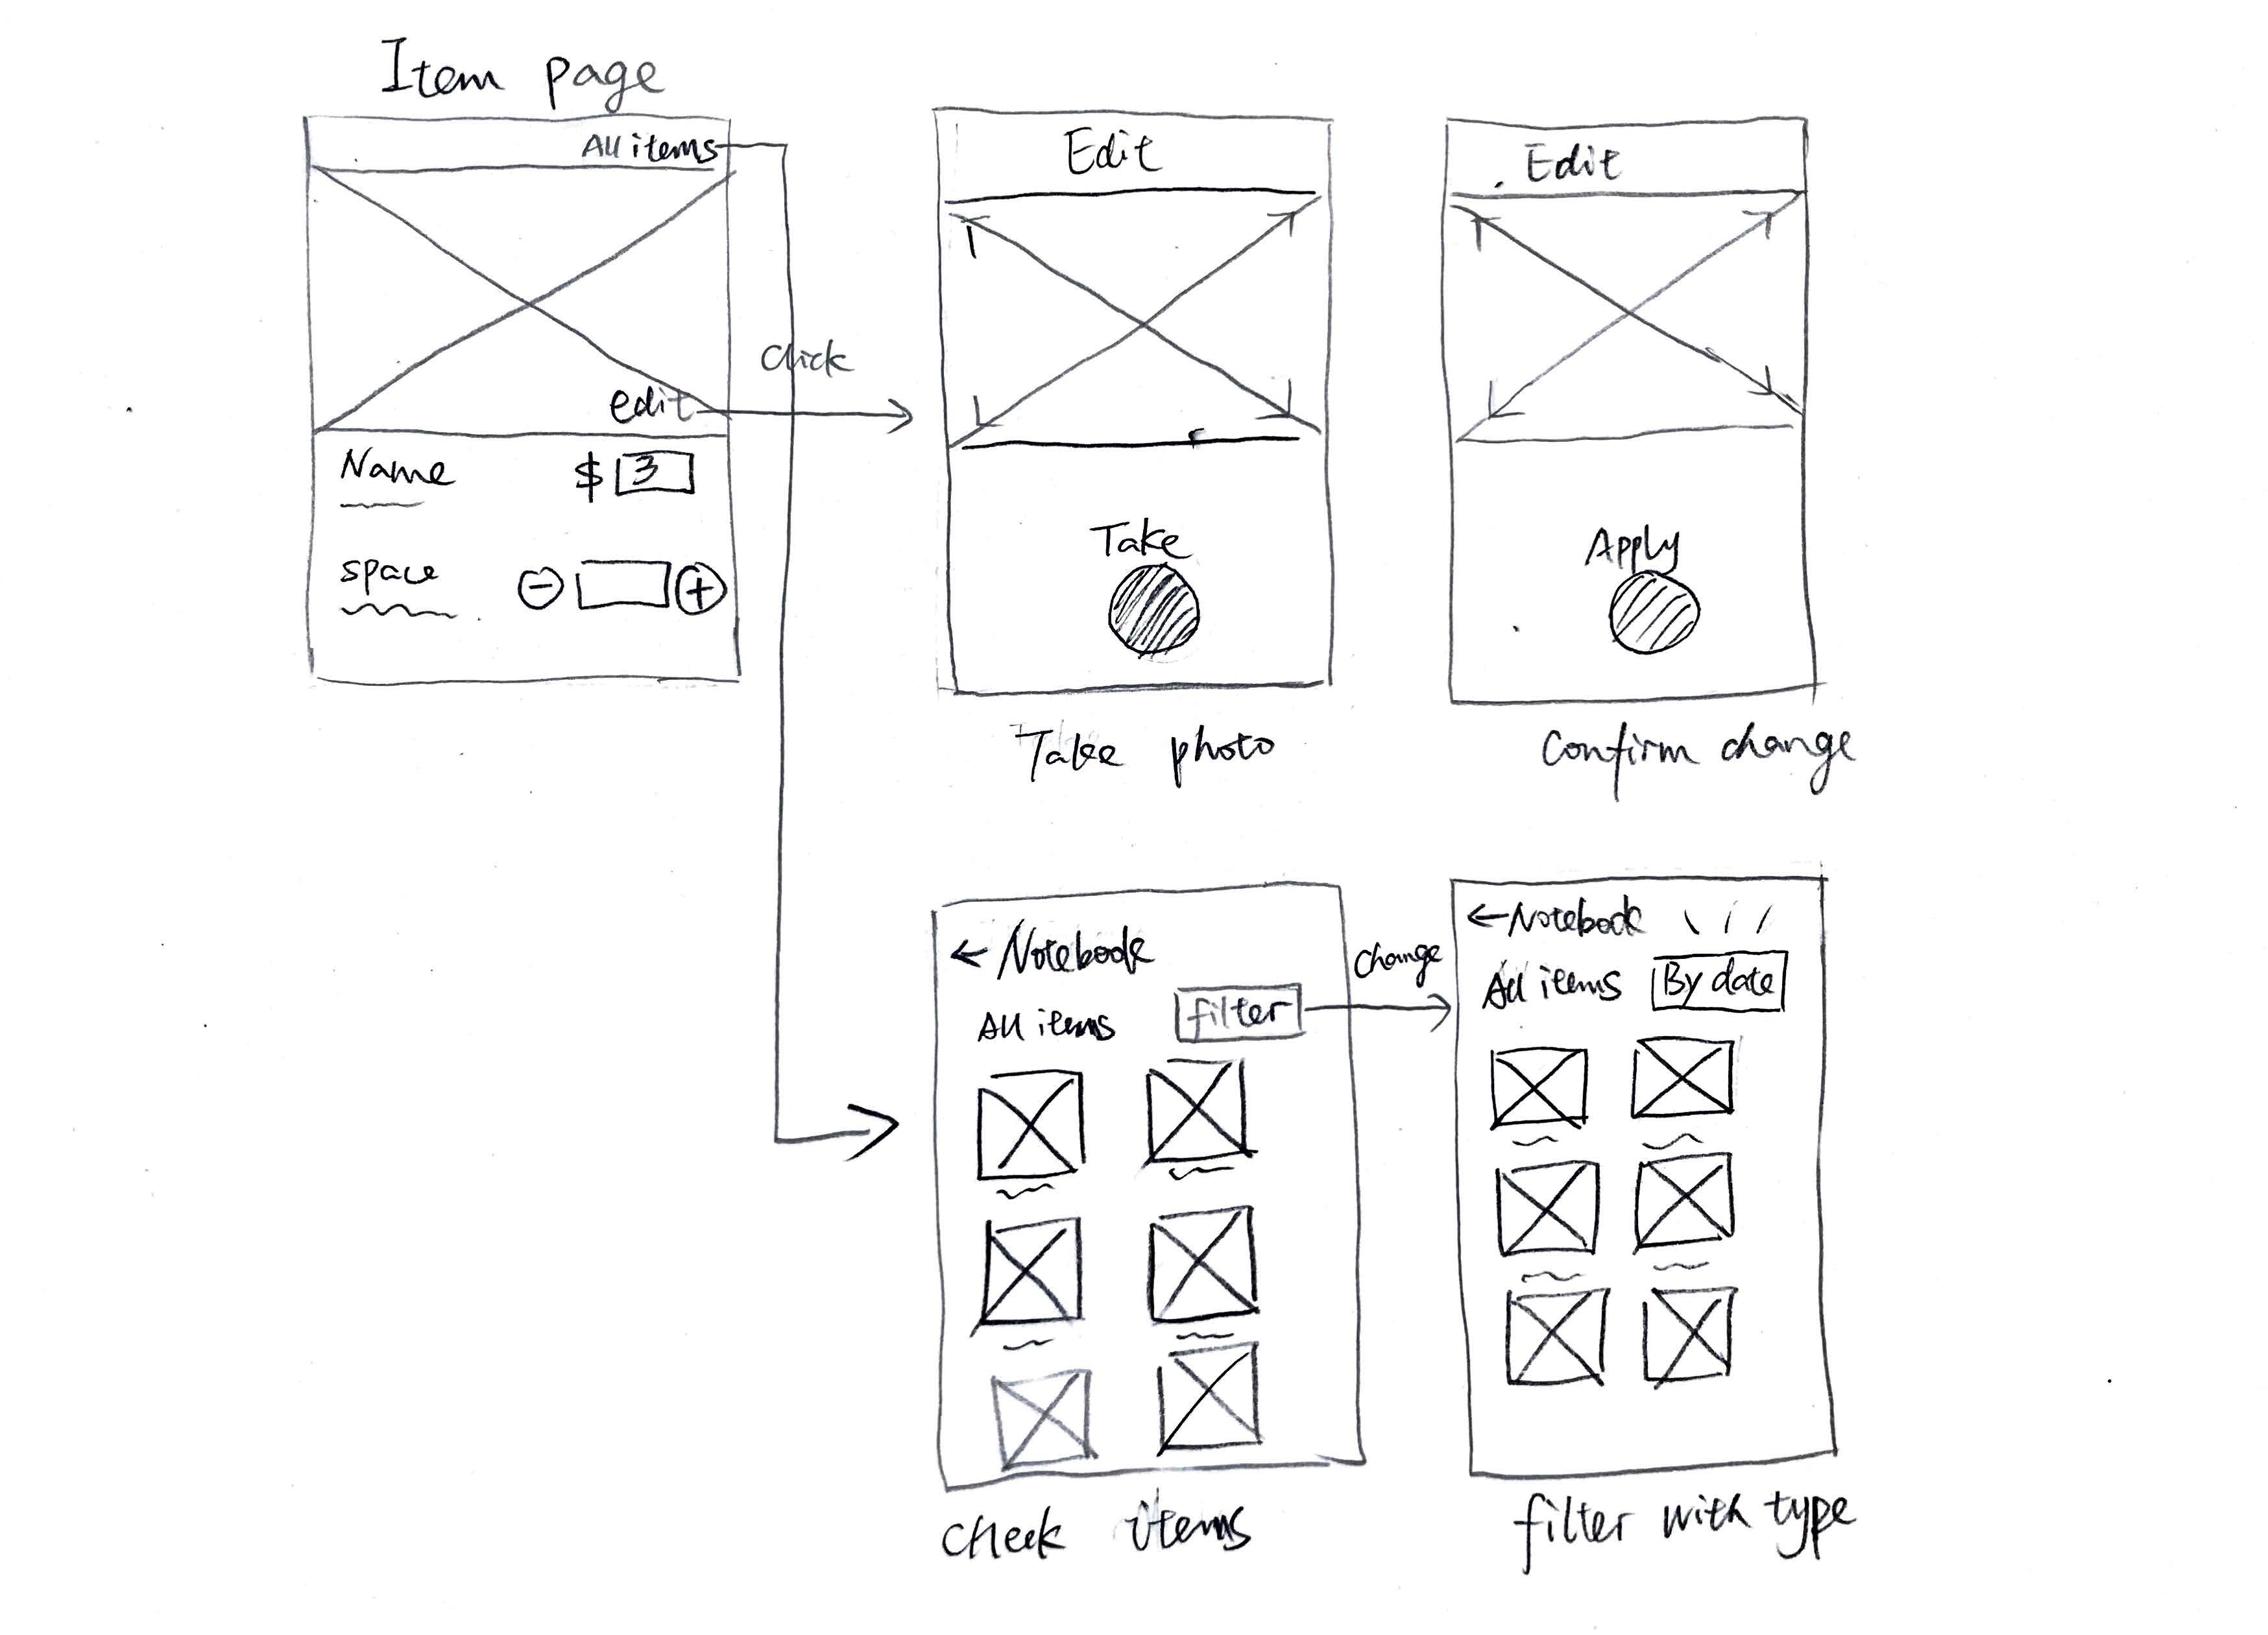 Item page
All items
edit
Name
$ 3
space
-
+
Click
Edit
Take
Take photo
Edit
Apply
Confirm change
← Notebook
All items
filter
Check items
Change
← Notebook
All items
By date
filter with type